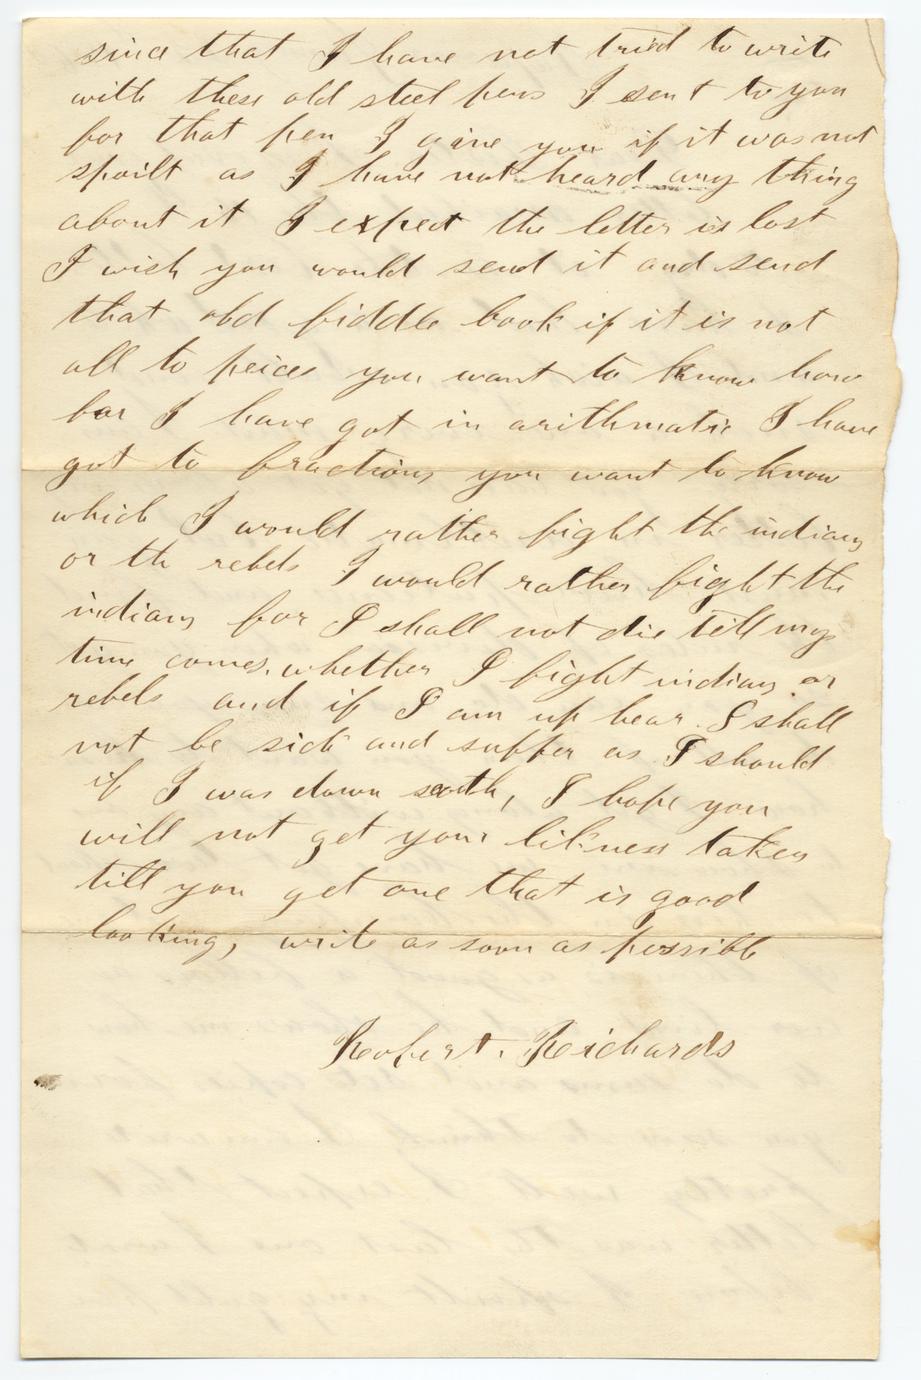 since that I have not tried to write
with these old steel pens I sent to you
for that pen I give you if it was not
spoilt as I have not heard any thing
about it I expect the letter is lost
I wish you would send it and send
that old fiddle book if it is not
all to peices you want to know how
far I have got in arithmatic I have
got to fractions you want to know
which I would rather fight the indians
or the rebels I would rather fight the
indians for I shall not die till my
time comes, whether I fight indians or
rebels and if I am up hear I shall
not be sick and suffer as I should
if I was down south, I hope you
will not get your likness taken
till you get one that is good
looking, write as soon as possible
Robert. Reichards